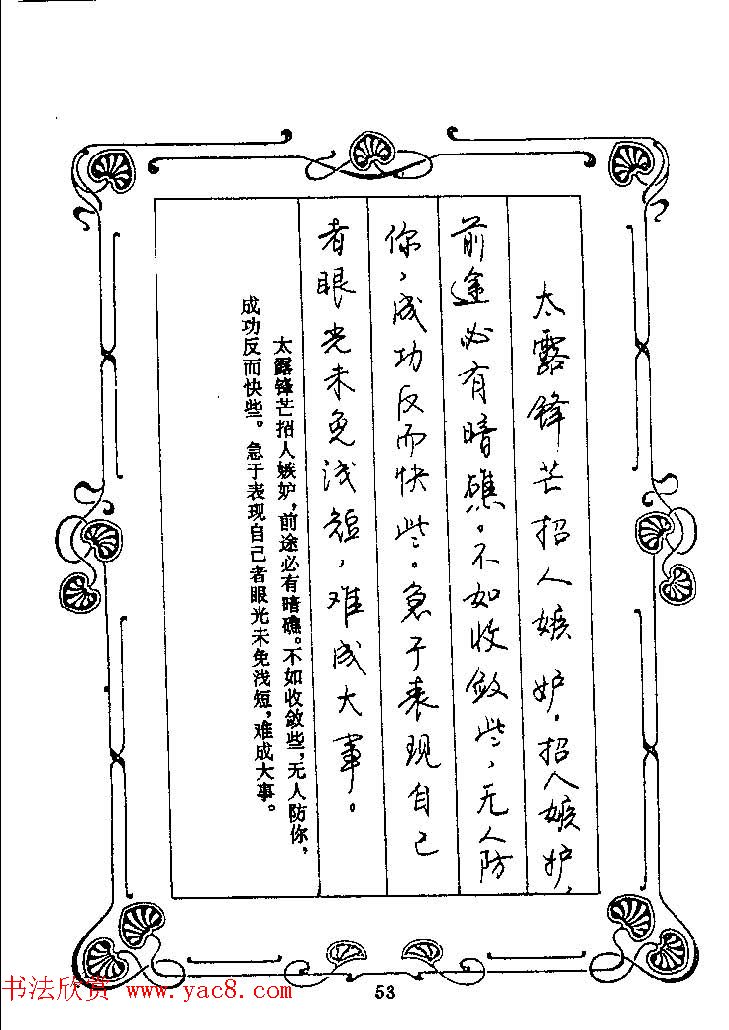 太露锋芒招人嫉妒。招人嫉妒，
前途必有暗礁。不如收敛些，无人防
你，成功反而快些。急于表现自己
者眼光未免浅短，难成大事。
太露锋芒招人嫉妒，前途必有暗礁。不如收敛些，无人防你，
成功反而快些。急于表现自己者眼光未免浅短，难成大事。
书法欣赏 www.yac8.com
53